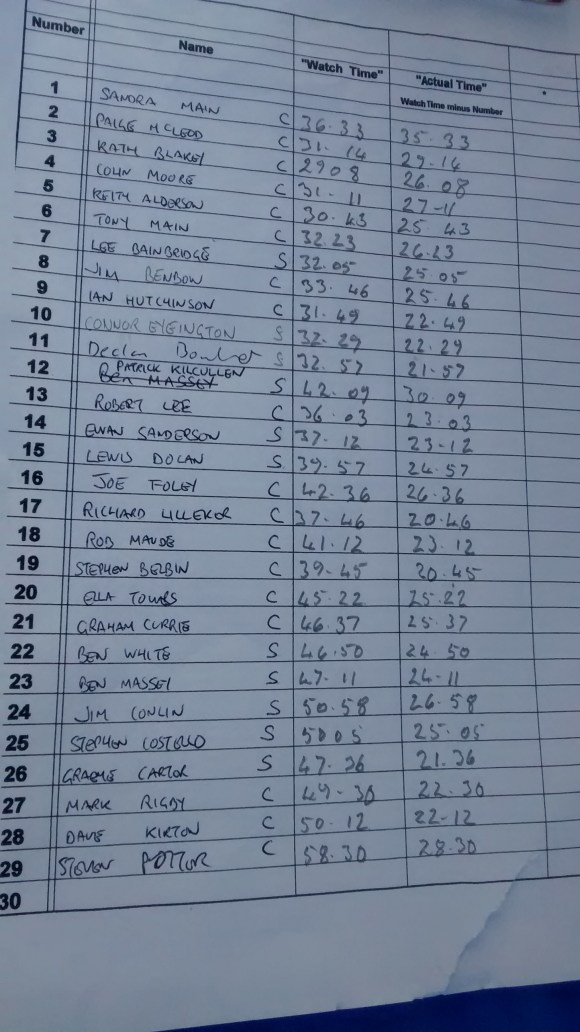 Number Name "Watch Time" "Actual Time"
Watch Time minus Number
1 SANDRA MAIN C 36.33 35.33
2 PAIGE MCLEOD C 31.14 29.14
3 KATH BLAKEY C 2908 26.08
4 COLIN MOORE C 31.11 27-11
5 KEITH ALDERSON C 30.43 25.43
6 TONY MAIN C 32.23 26.23
7 LEE BAINBRIDGE S 32.05 25.05
8 JIM BENBOW C 33.46 25.46
9 IAN HUTCHINSON C 31.49 22.49
10 CONNOR EVEINGTON S 32.29 22.29
11 Declan S 32.57 21.57
12 PATRICK KILCULLEN S 42.09 30.09
Ben MASSEY
13 ROBERT LEE C 36.03 23.03
14 EWAN SANDERSON S 37.12 23-12
15 LEWIS DOLAN S 39.57 24.57
16 JOE FOLEY C 42.36 26.36
17 RICHARD C 37.46 20.46
18 ROB MAUDE C 41.12 23.12
19 STEPHEN BELBIN C 39.45 20.45
20 ELLA TOMBS C 45.22 25.22
21 GRAHAM CURRIE C 46.37 25.37
22 BEN WHITE S 46.50 24.50
23 BEN MASSEY S 47.11 24-11
24 JIM CONLIN S 50.58 26.58
25 STEPHEN COSTELLO S 5005 25.05
26 GRAEME CARTOR S 47.36 21.36
27 MARK RIGBY C 49-30 22.30
28 DAVE KIRTON C 50.12 22-12
29 STEVEN POTTOR C 58.30 28.30
30